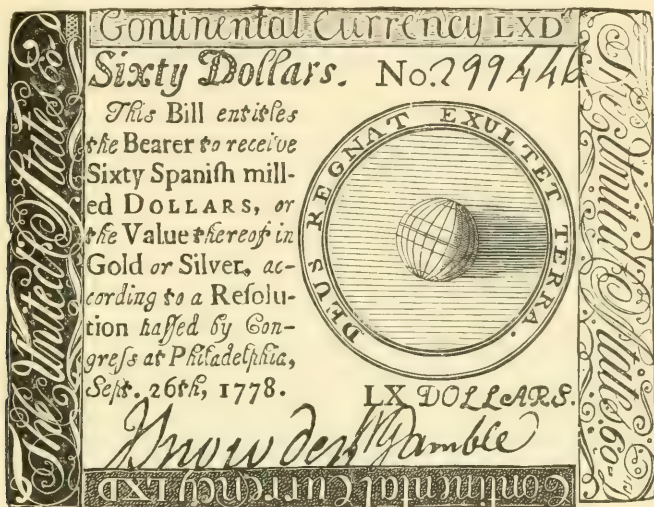 Continental Currency LXD<sup>rs</sup>
Sixty Dollars. No. 299446
This Bill entitles
the Bearer to receive
Sixty Spaniſh mill-
ed DOLLARS, or
the Value thereof in
Gold or Silver, ac-
cording to a Reſolu-
tion paſſed by Con-
greſs at Philadelphia,
Sept. 26th, 1778.
DEUS REGNAT EXULTET TERRA.
LX DOLLARS.
J Snowden W Gamble
Continental Currency LXD
The United States. 60
The United States 60